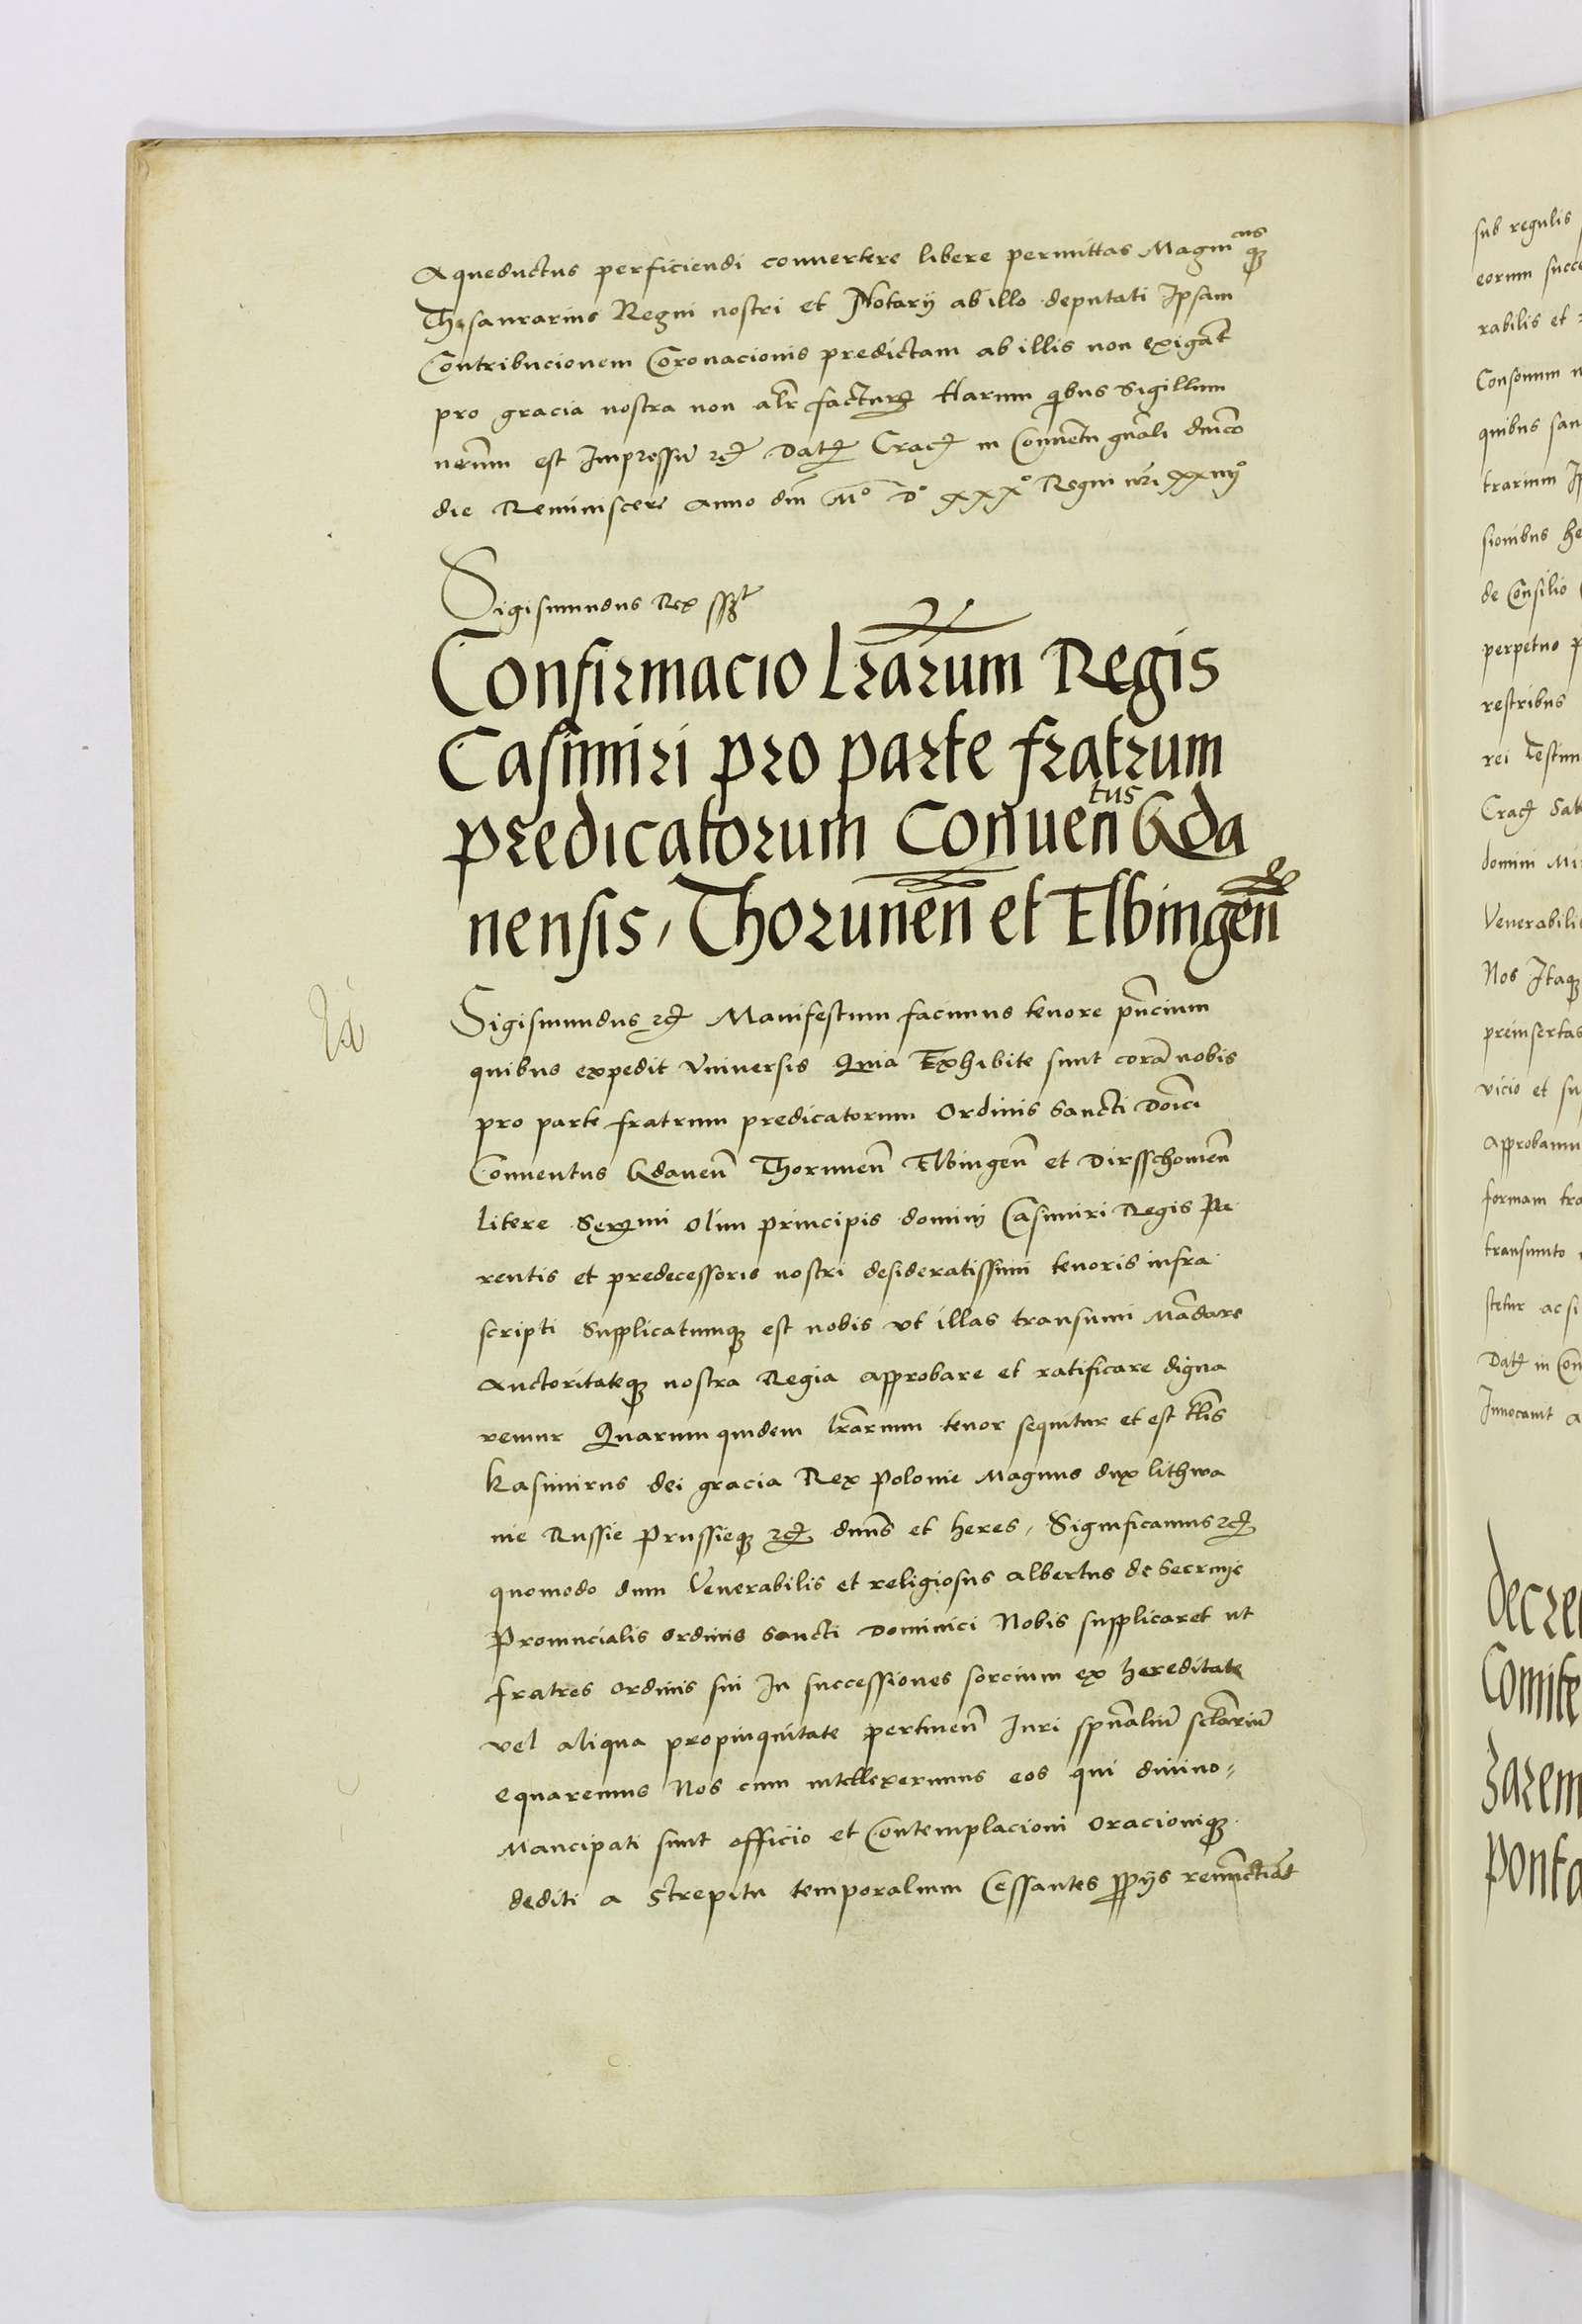 Aqueductus perficiendi conuertere libere permittas Magni cus qȝ
Thesaurarius Regni nostri et Notarij ab illo deputati Ipsam
Contribucionem Coronacionis predictam ab illis non exigāt
pro gracia nostra non alr̄ factur Harum qibus Sigillum
nr̄um est Impressū Dat Crac in Conuētu gn̄ali dnīco
die Reminiscere Anno dnī Mº Dº xxxº Regni nr̄i xxiiijº
Sigismundus Rex ssȝt
Confirmacio lrārum Regis
Casimiri pro parte fratrum
predicatorum Conuentus Gda
nensis, Thorunen̄ et Elbingen̄
Sigismundus Manifestum facimus tenore pn̄cium
quibus expedit Vniuersis Quia Exhibite sunt corā nobis
pro parte fratrum predicatorum Ordinis Sancti Domīci
Conuentus Gdanen̄ Thorunen̄ Elbingen̄ et Dirsschouien̄
litere Serᵐⁱ olim principis domini Casimiri Regis Pa
rentis et predecessoris nostri desideratissimi tenoris infra
scripti Supplicatumqȝ est nobis vt illas transumi Mādare
Auctoritateqȝ nostra Regia approbare et ratificare digna
remur Quarum quidem lrārum tenor sequitur et est tl̄is
Kasimirus dei gracia Rex Polonie Magnus dux lithwa
nie Russie Prussieqȝ dnūs et heres, Significamus
quomodo dum Venerabilis et religiosus Albertus de
Prouincialis ordinis Sancti Dominici Nobis supplicaret ut
fratres ordinis sui In successiones sorcium ex hereditate
vel aliqua propinquitate pertinen̄ Iuri spūaliū sclāriū
equaremus Nos cum intellexerimus eos qui diuino
Mancipati sunt officio et Contemplacioni oracioniqȝ
dediti a Strepitu temporalium Cessantes renunctiāt
sub regulis
eorum succe
rabilis et
Consonum
quibus san
trarium Ip
sionibus he
de Consilio
perpetuo p
restribus
rei Testim
Crac Sab
domini Mi
Venerabili
Nos Itaqȝ
preinsertas
vicio et su
Approbamu
formam tra
transumto
stetur ac si
Dat in Con
Innocauit a
decre
Comite
Zarem
Ponta